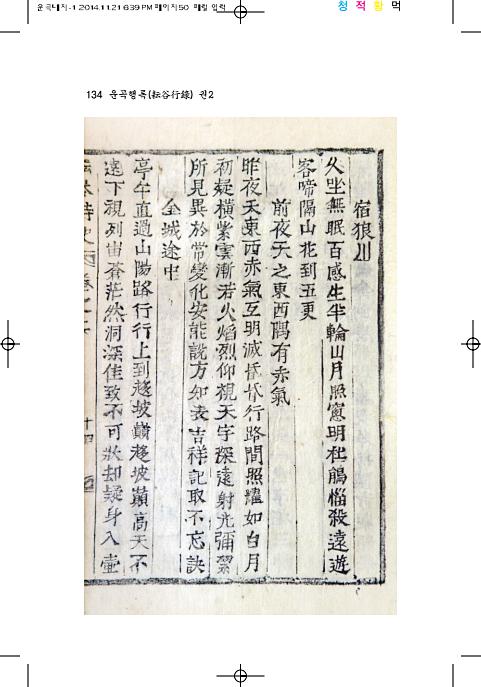 운곡대치-1 2014.11.21 6:39 PM 페이지50 매킬 입력
청 적 황 먹
134 운곡행록(耘谷行錄) 권2
宿狼川
久坐無眠百感生半輪山月照窓明杜鵑惱殺遠遊
客啼隔山花到五更
前夜天之東西隅有赤氣
昨夜天東西赤氣互明滅昏昏行路間照耀如白月
初疑橫紫雲漸若火焰烈仰視天宇深遠射光彌
所見異於常變化安能說方知表吉祥記取不忘訣
金城途中
亭午直過山陽路行行上到趍坡巓趍坡巓高天不
遠下視列宙蒼茫然洞深佳致不可狀却疑身入壺